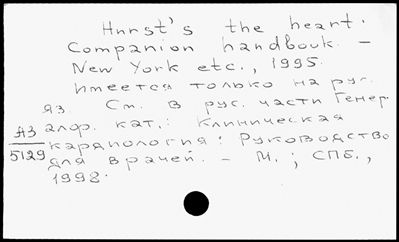 Hnrst's the heart.
Companion handbook. –
New York etc., 1995.
Имеется только на рус.
яз. См. в рус. части Генер.
АЗ алф. кат.: Клиническая
5129 кардиология: Руководство
для врачей. – М.; СПб.,
1998.